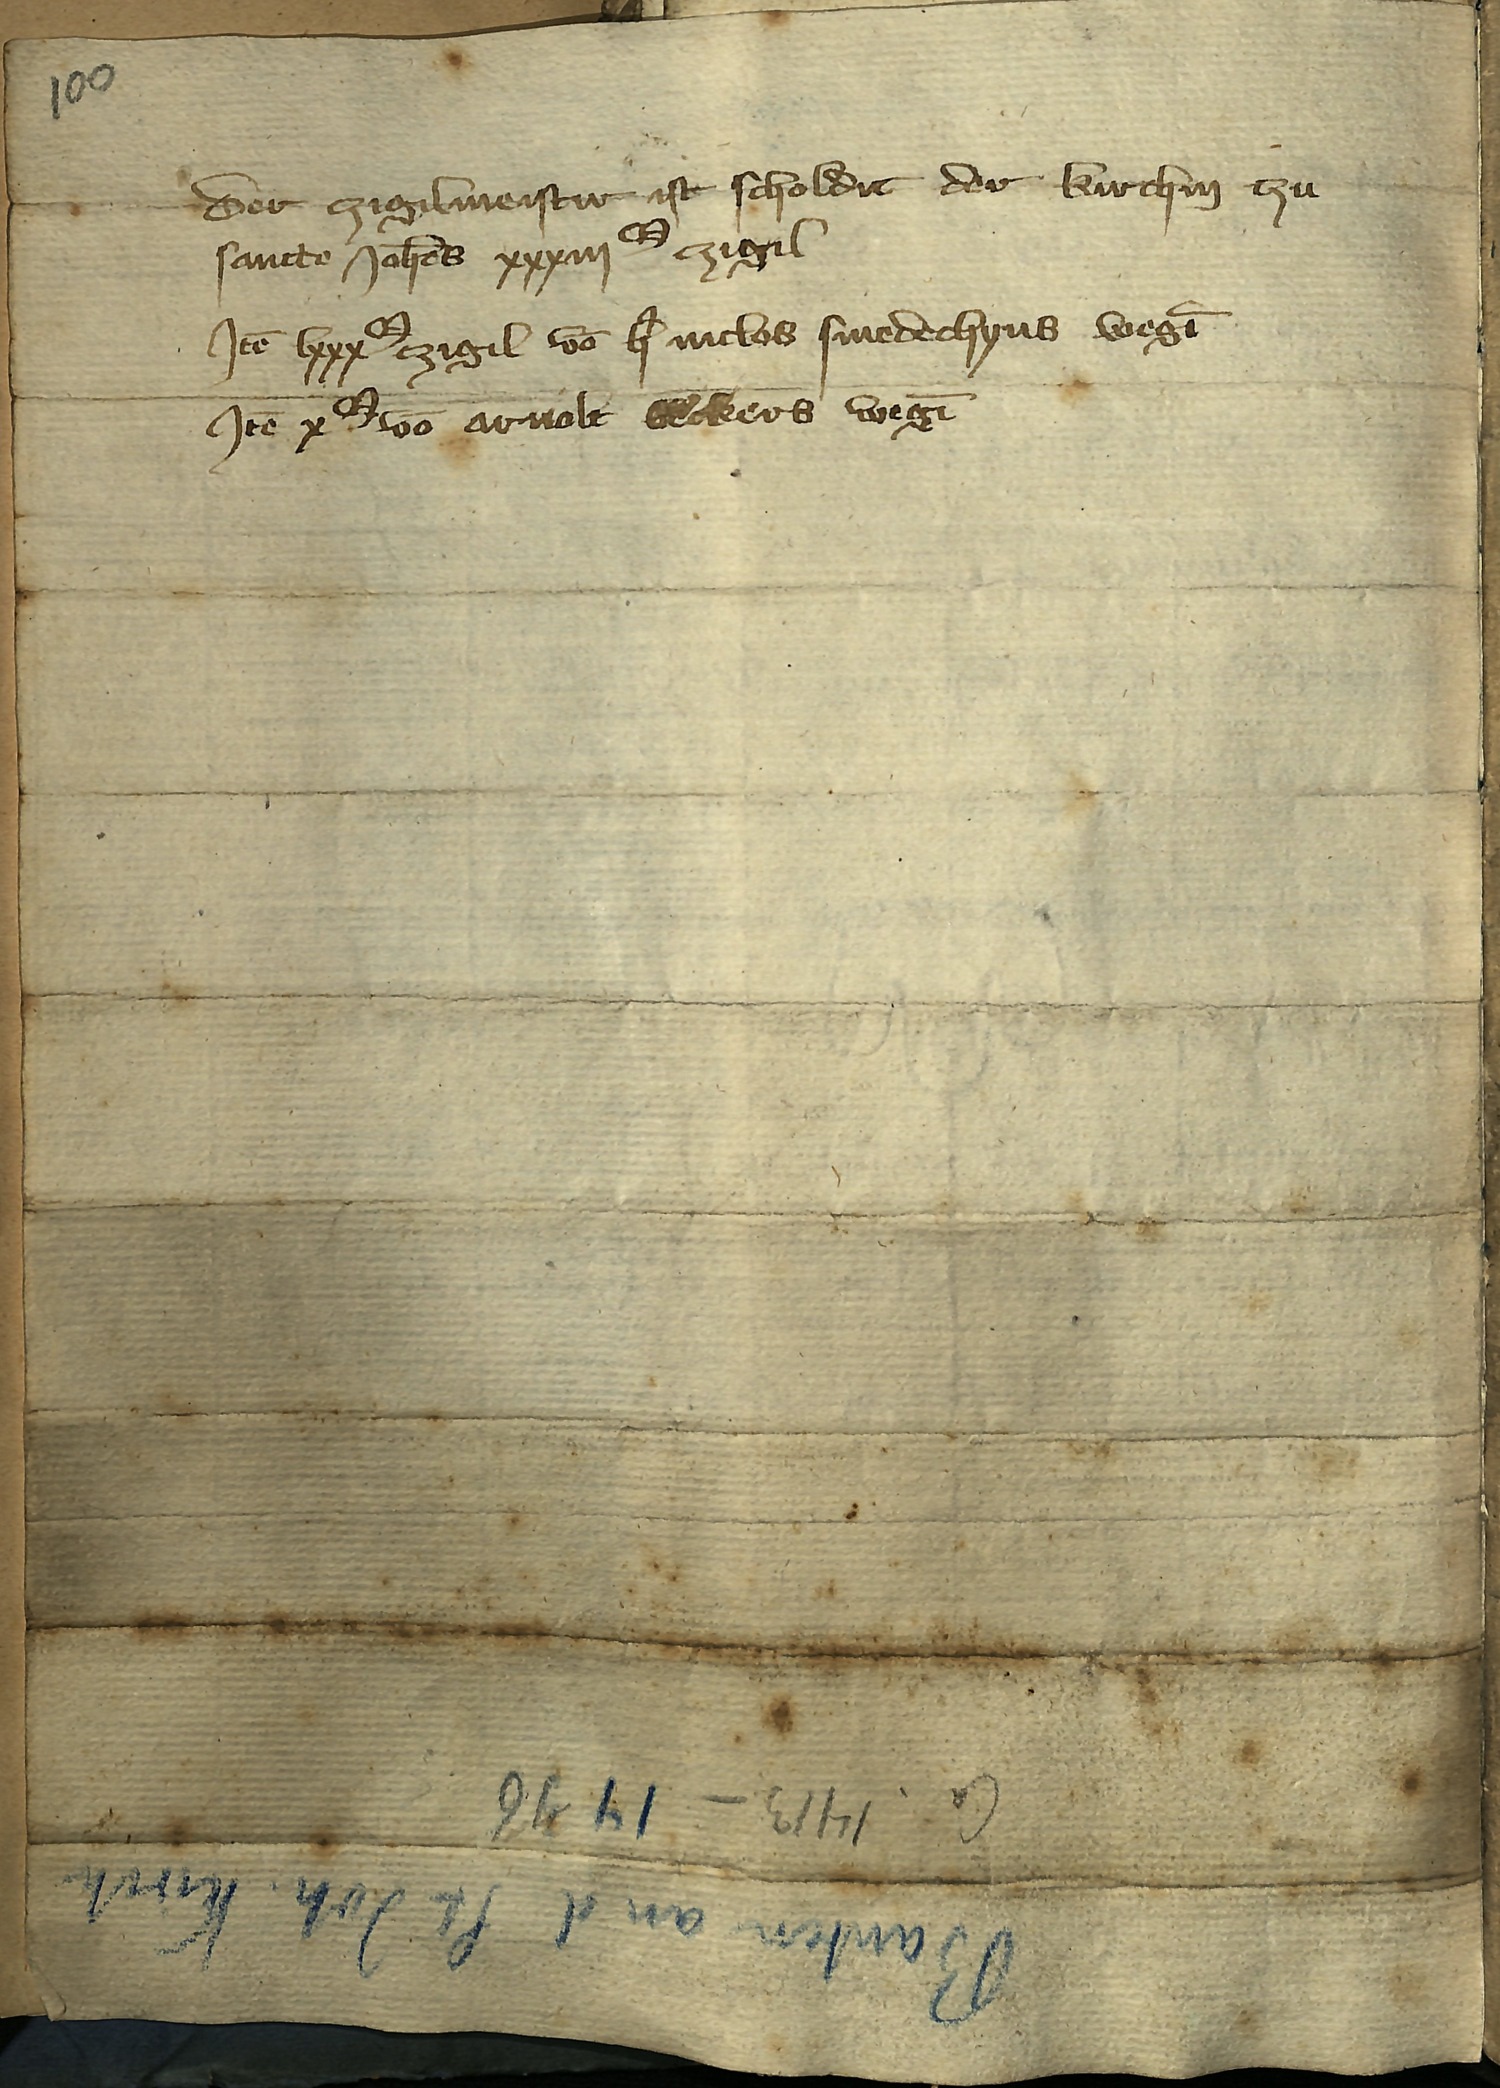 100
Der czigilmeistir ist scholdic der kirchin czu
sancte Joh̄es xxxiii czigil
Itē lxxx czigil vō h̓ niclos smedechyns wegī
Itē x vō arnolt beckers wegī
Ca. 1413 – 1446
Bauten an d St Joh. Kirch